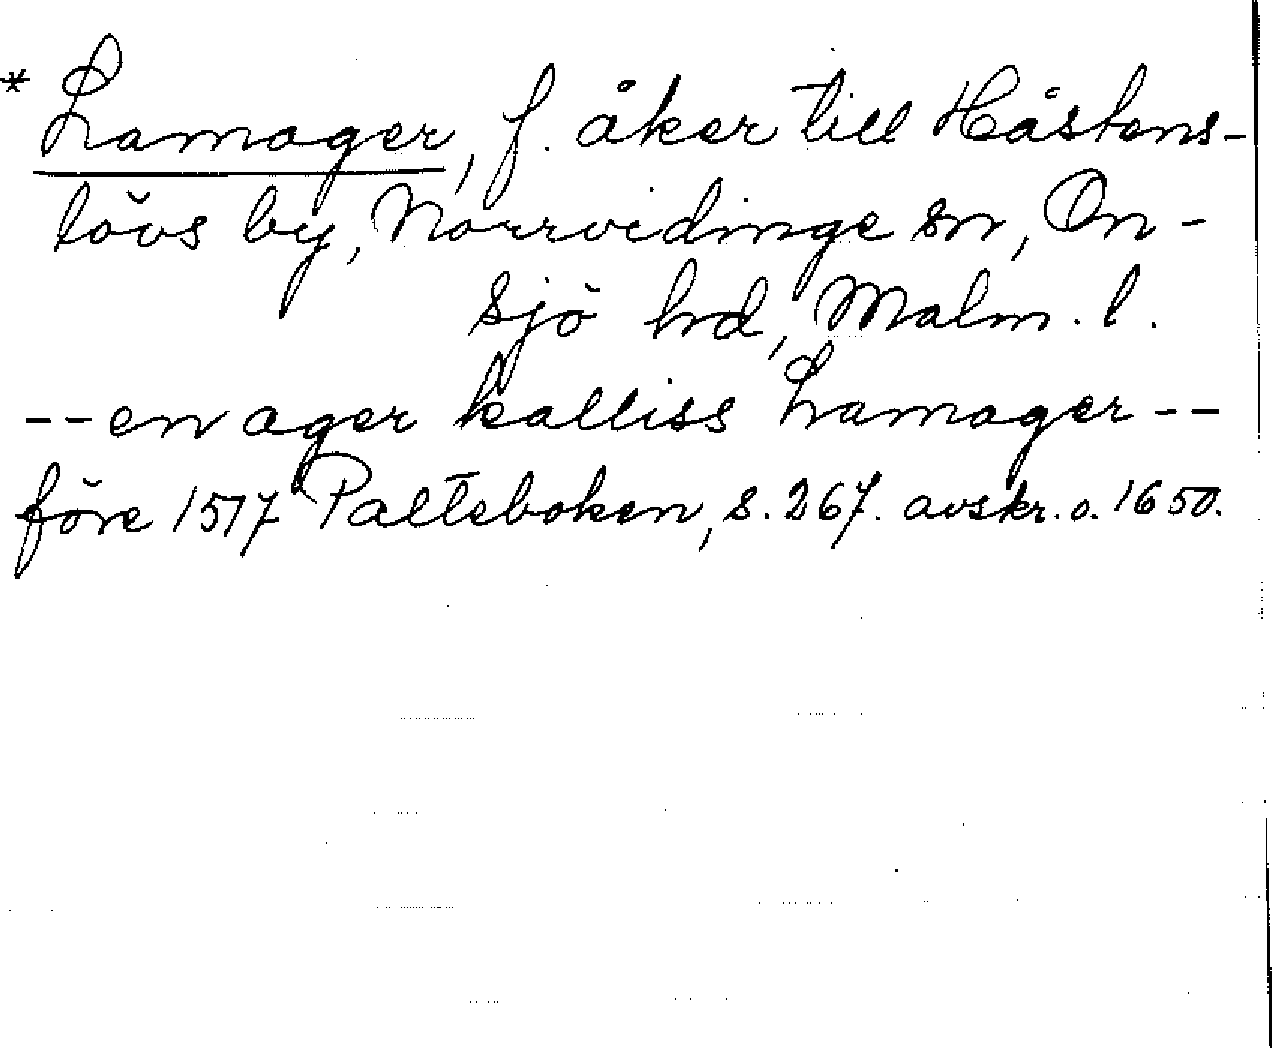 * Lamager, f. åker till Håstens-
lövs by, Norrvidinge sn, On-
sjö hd, Malm. l.
-- en ager kalliss Lamager --
före 1517 Palteboken, s. 267. avskr. o. 1650.